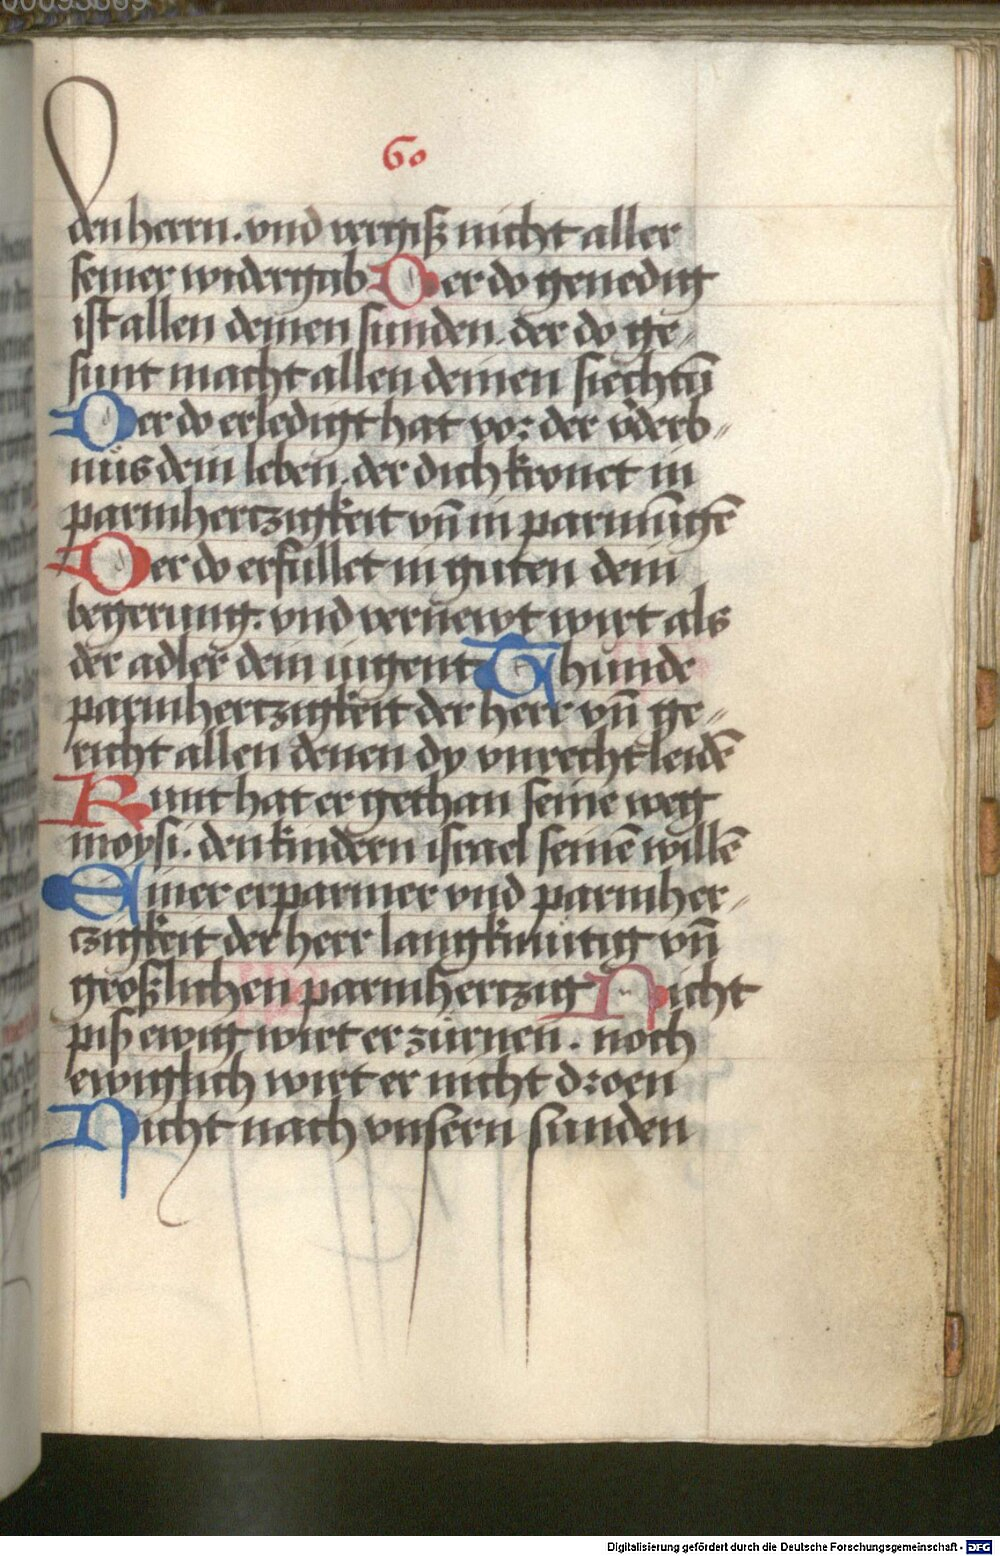 60
den herrn. vnd vergiß nicht aller
seiner widergab Der do genedig
ist allen deinen sunden. der do ge„
sunt macht allen deinen siechtū
Der do erledigt hat vor der vderb„
nüs dein leben. der dich kronet in
parmhertzigkeit vn̄ in parmūgē
Der do erfullet in guten dein
begerung. vnd vernewt wirt als
der adler dein iugent Thunde
parmhertzigkeit der herr vn̄ ge„
richt allen denen dy vnrecht leidē
Kunt hat er gethan seine weg
moysi. den kindern israel seinē willē
Einer erparmer vnd parmher„
tzigkeit der herr langkmütig vn̄
größlichen parmhertzig Nicht
piß ewig wirt er zürnen. noch
ewiglich wirt er nicht droen
Nicht nach vnsern sunden
Digitalisierung gefördert durch die Deutsche Forschungsgemeinschaft - DFG